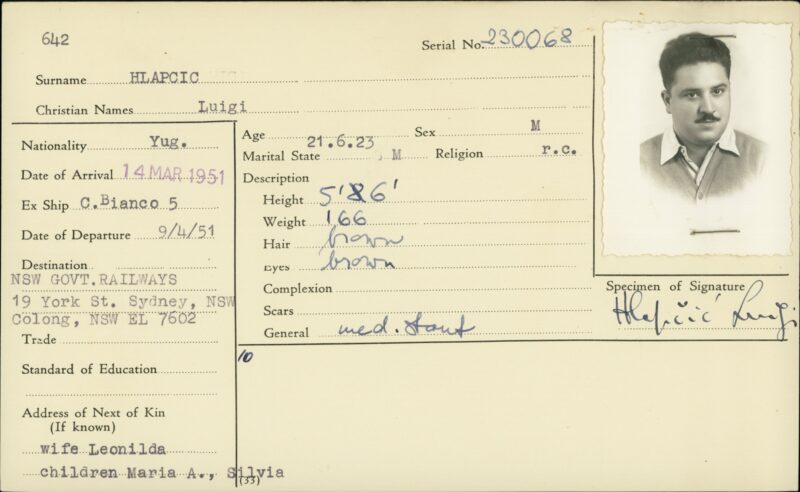 642
Serial No. 230068
Surname HLAPCIC
Christian Names Luigi
Nationality Yug.
Date of Arrival 14 MAR 1951
Ex Ship C.Bianco 5
Date of Departure 9/4/51
Destination
NSW GOVT.RAILWAYS
19 York St. Sydney, NSW
Colong, NSW EL 7602
Trade
Standard of Education
Address of Next of Kin
(If known)
wife Leonilda
children Maria A., Silvia
Age 21.6.23 Sex M
Marital State M Religion r.c.
Description
Height 5'8 6'
Weight 166
Hair brown
Eyes brown
Complexion
Scars
General med. stout
10
(33)
Specimen of Signature
Hlapčić Luigi